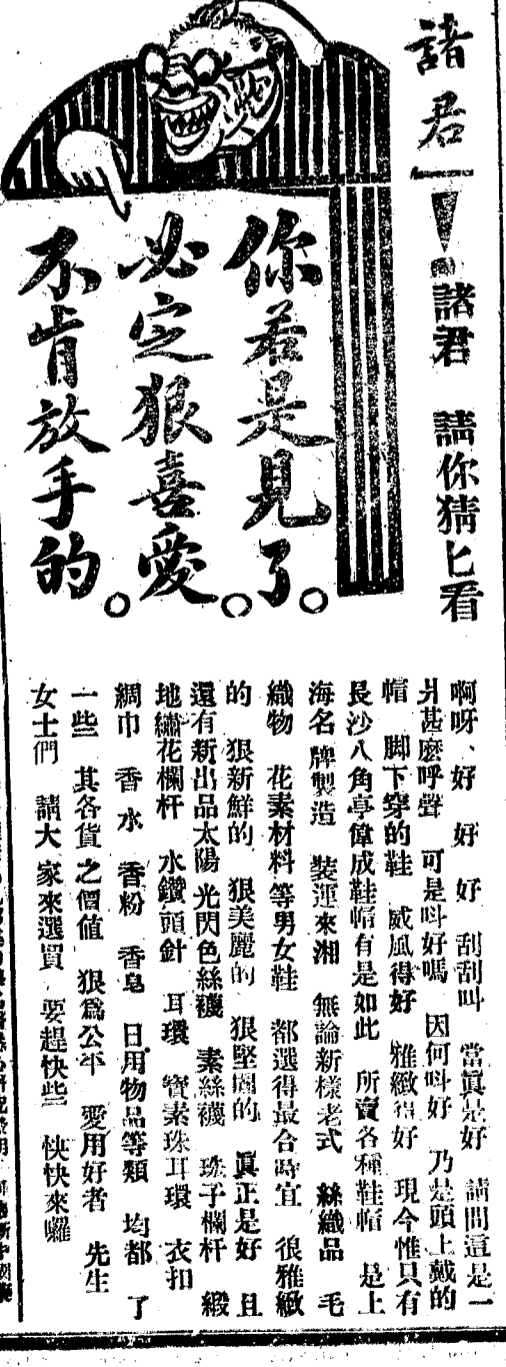 諸君！
諸君　請你猜匕看
你若是見了。
必定狠喜愛。
不肯放手的。
啊呀、好　好　好　刮刮叫　當眞是好　請問這是一
爿甚麽呼聲　可是呌好嗎　因何呌好　乃是頭上戴的
帽　脚下穿的鞋　威風得好　雅緻得好　現今惟只有
長沙八角亭偉成鞋帽有是如此　所賣各種鞋帽　是上
海名牌製造　裝運來湘　無論新樣老式　絲織品　毛
織物　花素材料等男女鞋　都選得最合時宜　很雅緻
的　狠新鮮的　狠美麗的　狠堅固的　眞正是好　且
還有新出品太陽光閃色絲襪　素絲襪　珠子欄杆　緞
地繡花欄杆　水鑽頭針　耳環　寶素珠耳環　衣扣
綢巾　香水　香粉　香皂　日用物品等類　均都　了
一些　其各貨之價値　狠爲公平　愛用好者　先生
女士們　請大家來選買　要趕快些　快快來囉